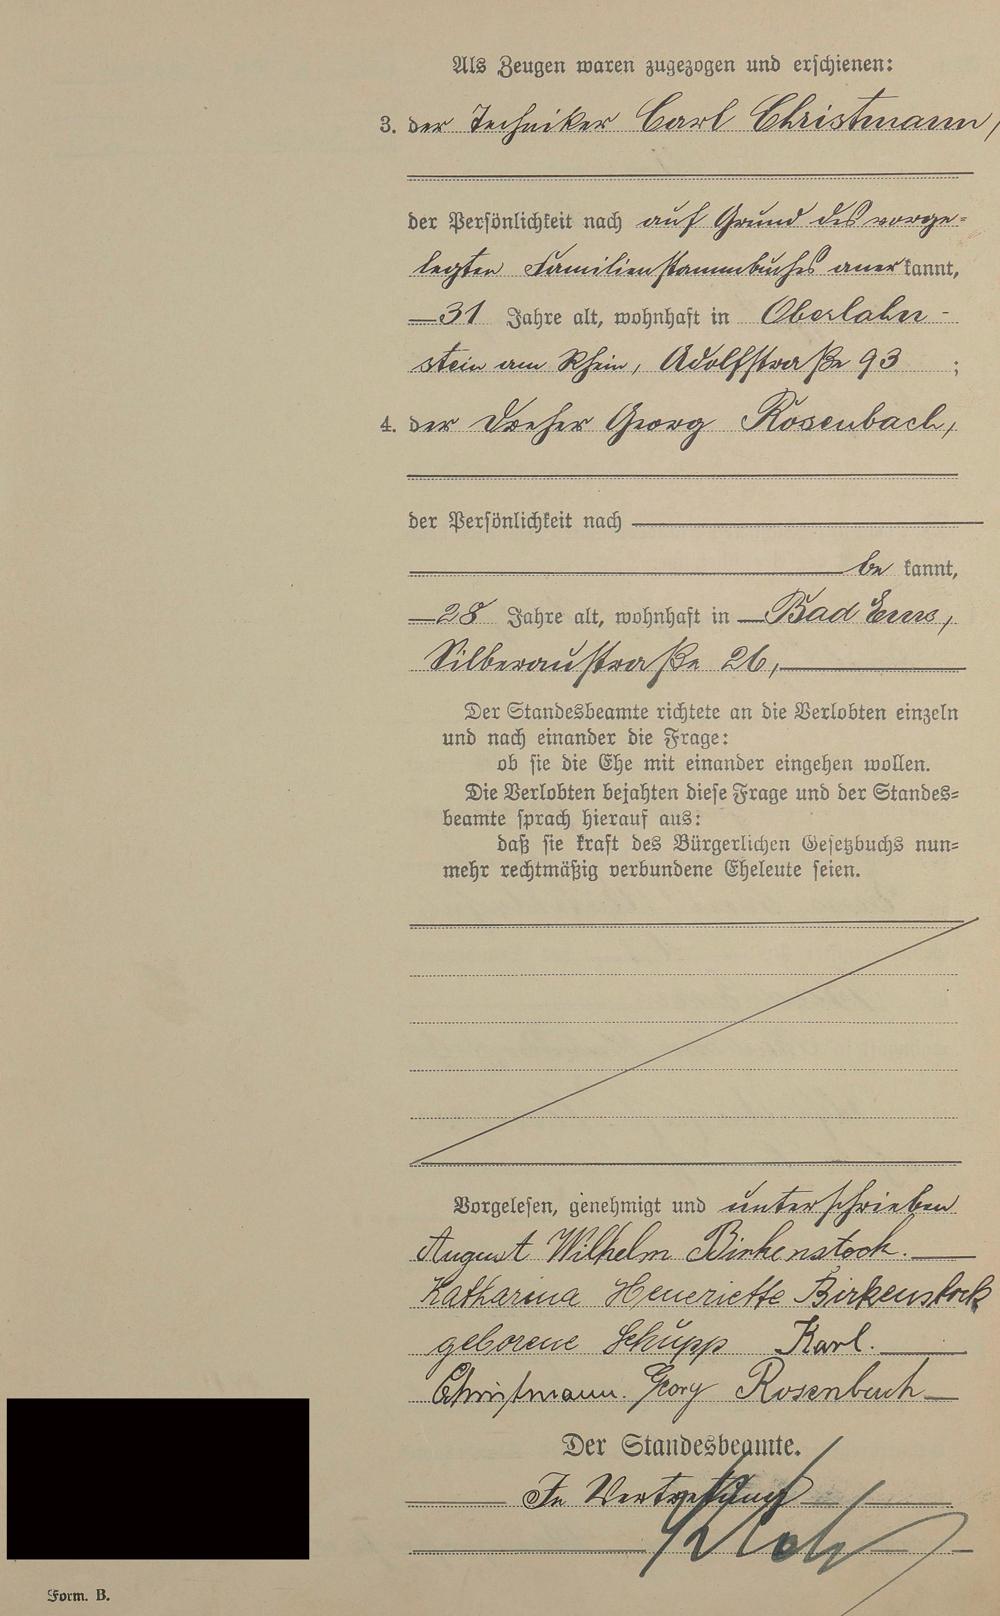 Als Zeugen waren zugezogen und erschienen:
3. der Techniker Carl Christmann,
der Persönlichkeit nach auf Grund des vorge=
legten Familienstammbuches anerkannt,
31 Jahre alt, wohnhaft in Oberlahn-
stein am Rhein, Adolfstraße 93 ;
4. der Dreher Georg Rosenbach,
der Persönlichkeit nach
be kannt,
28 Jahre alt, wohnhaft in Bad Ems,
Silberaustraße 26,
Der Standesbeamte richtete an die Verlobten einzeln
und nach einander die Frage:
ob sie die Ehe mit einander eingehen wollen.
Die Verlobten bejahten diese Frage und der Standes=
beamte sprach hierauf aus:
daß sie kraft des Bürgerlichen Gesetzbuchs nun=
mehr rechtmäßig verbundene Eheleute seien.
Vorgelesen, genehmigt und unterschrieben
August Wilhelm Birkenstock.
Katharina Henriette Birkenstock
geborene Schupp Karl.
Christmann. Georg Rosenbach
Der Standesbeamte.
In Vertretung
Form. B.